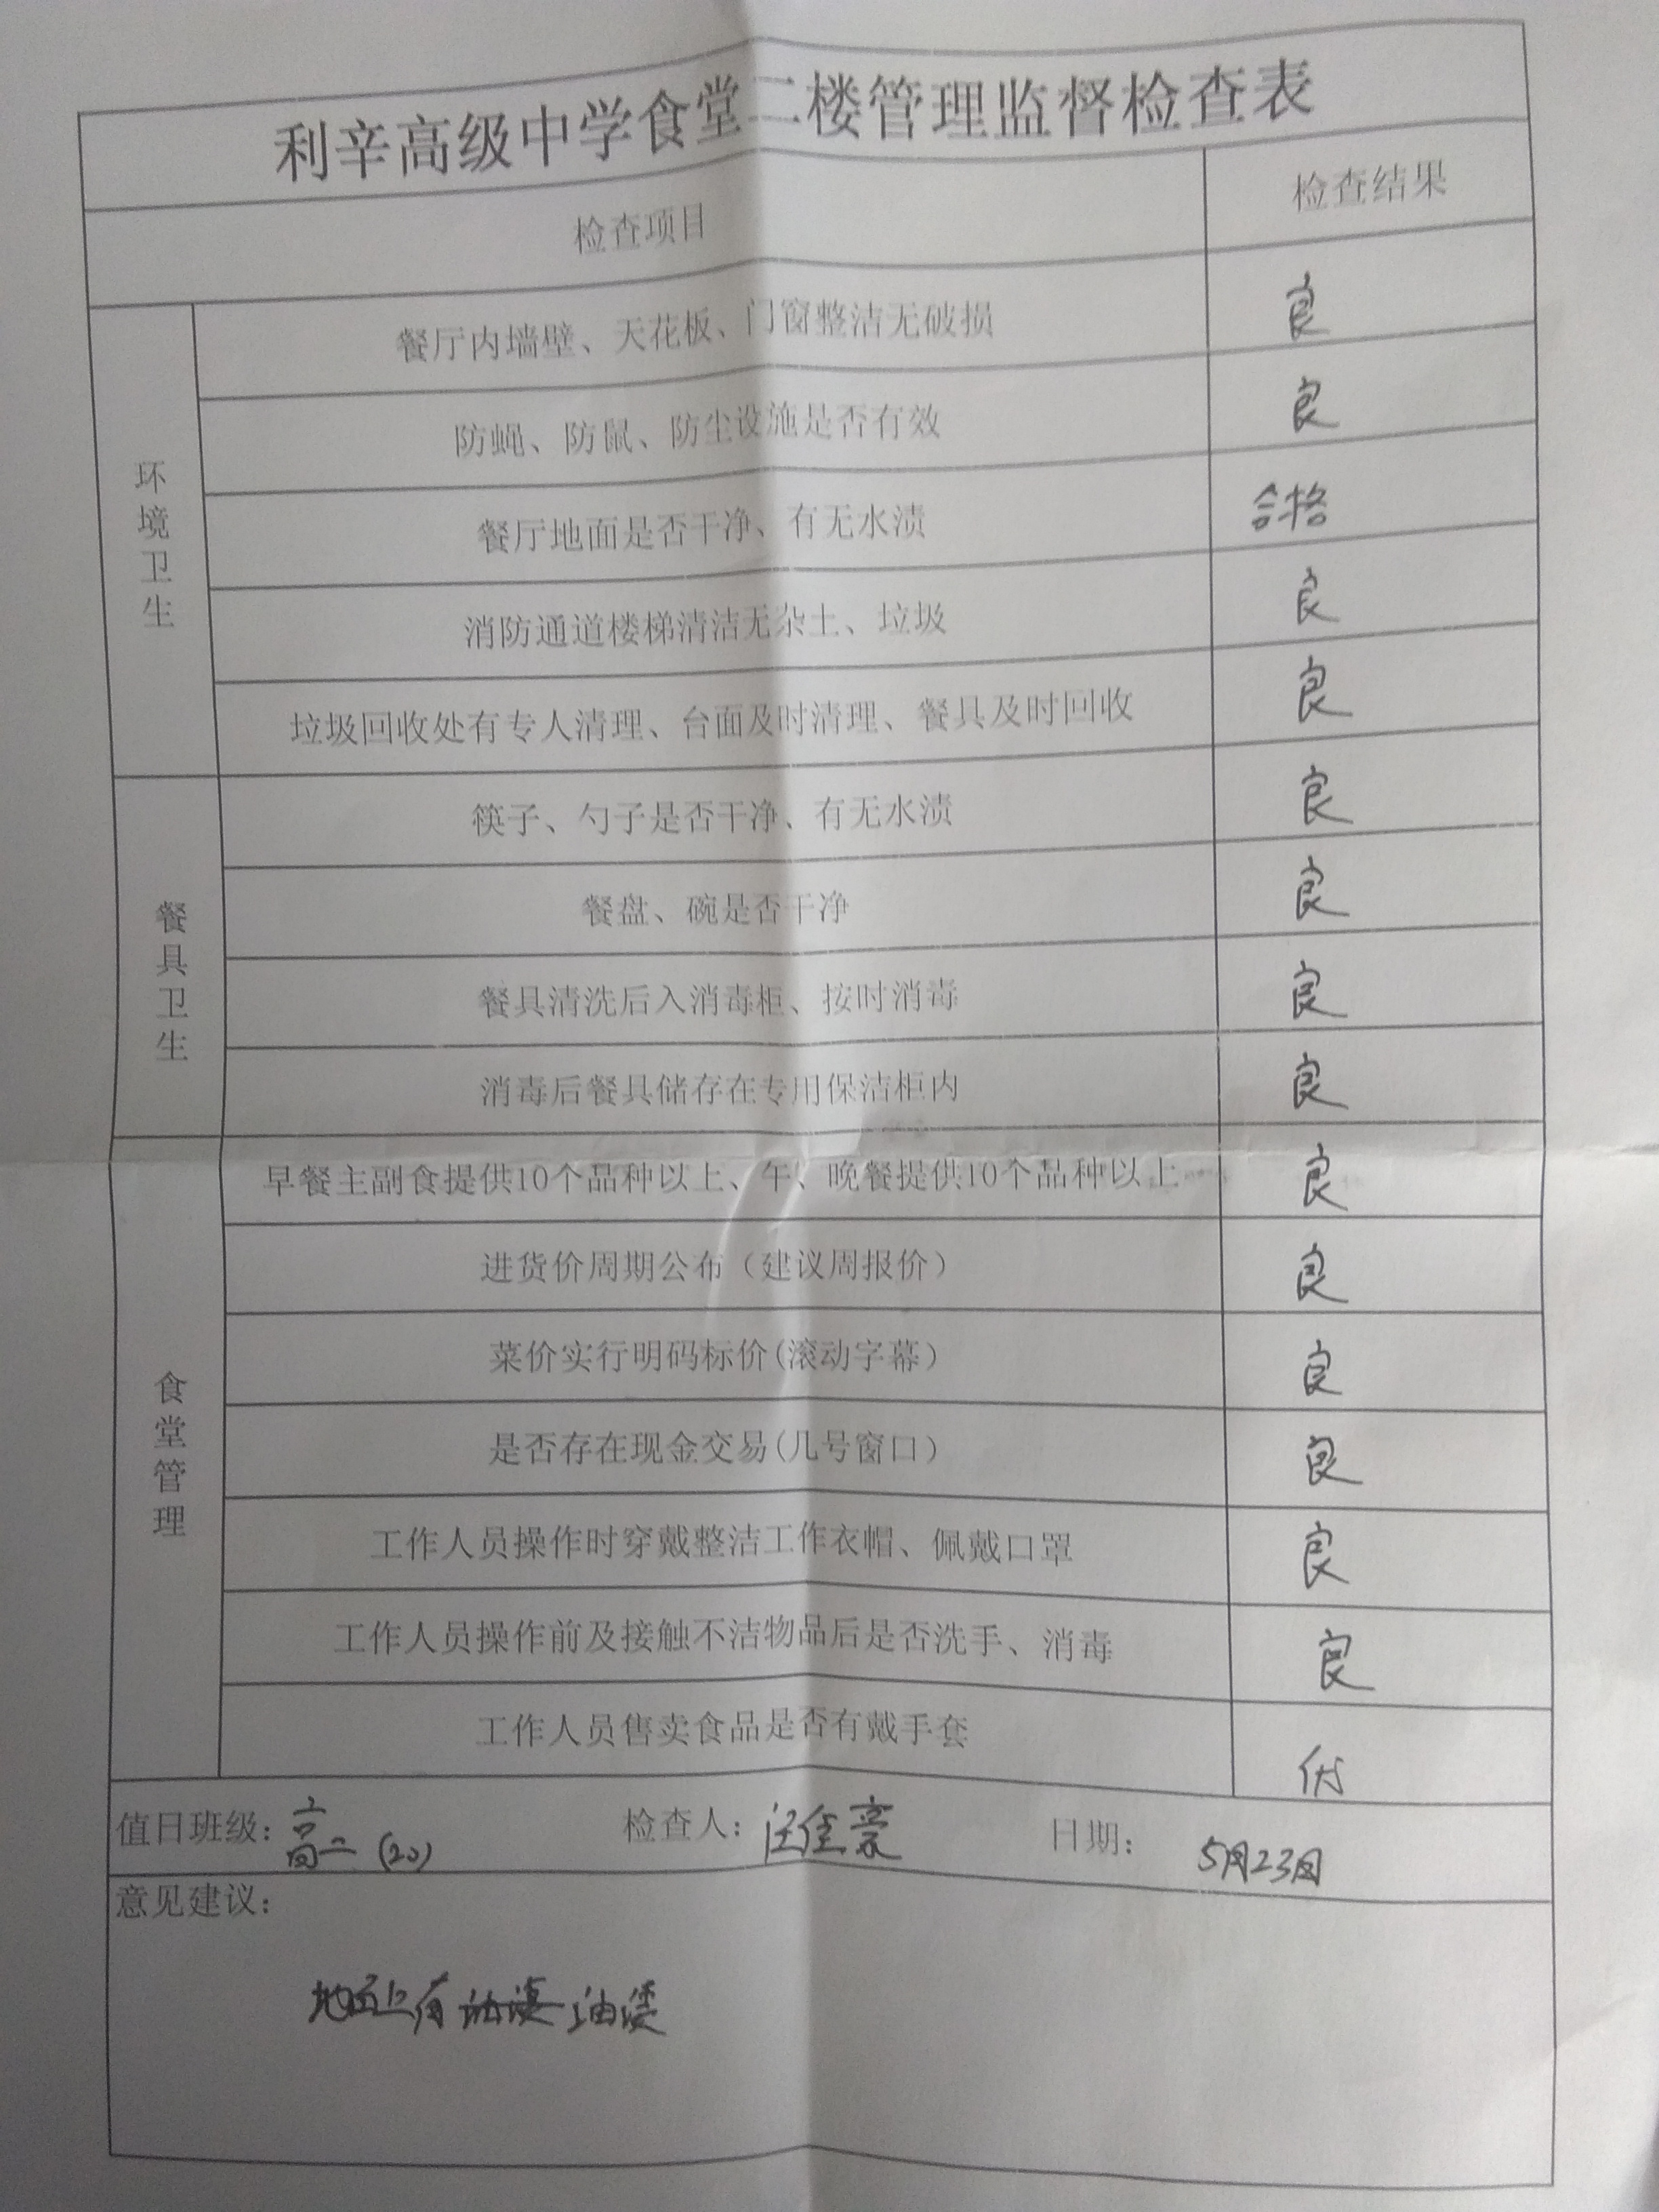 利辛高级中学食堂二楼管理监督检查表
检查项目 检查结果
环境卫生
餐厅内墙壁、天花板、门窗整洁无破损 良
防蝇、防鼠、防尘设施是否有效 良
餐厅地面是否干净、有无水渍 合格
消防通道楼梯清洁无杂土、垃圾 良
垃圾回收处有专人清理、台面及时清理、餐具及时回收 良
餐具卫生
筷子、勺子是否干净、有无水渍 良
餐盘、碗是否干净 良
餐具清洗后入消毒柜、按时消毒 良
消毒后餐具储存在专用保洁柜内 良
食堂管理
早餐主副食提供10个品种以上、午、晚餐提供10个品种以上 良
进货价周期公布（建议周报价） 良
菜价实行明码标价(滚动字幕） 良
是否存在现金交易(几号窗口） 良
工作人员操作时穿戴整洁工作衣帽、佩戴口罩 良
工作人员操作前及接触不洁物品后是否洗手、消毒 良
工作人员售卖食品是否有戴手套 优
值日班级：高二（20） 检查人：汪佳豪 日期：5月23日
意见建议：
地面上有油渍